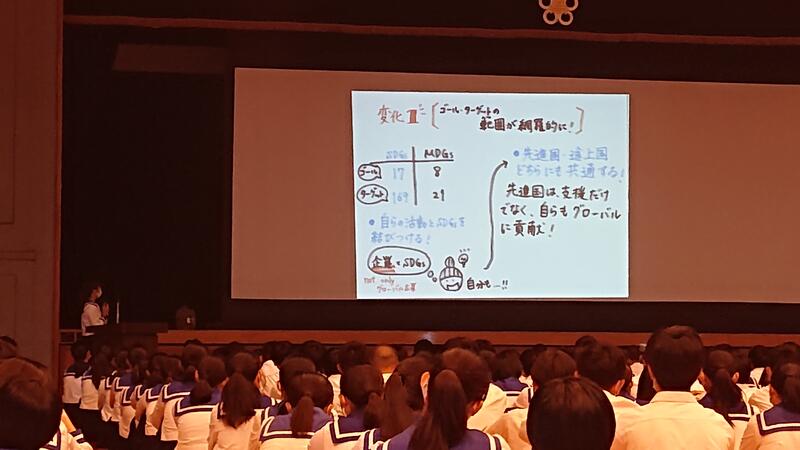 変化Ⅲ:[ゴール・ターゲットの
範囲が網羅的に!]
SDGs MDGs
ゴール 17 8
ターゲット 169 21
●自らの活動とSDGsを
結びつける!
企業とSDGs
not only
グローバル企業
自分も…!!
●先進国・途上国
どちらにも共通する!
先進国は、支援だけ
でなく、自らもグローバル
に貢献!